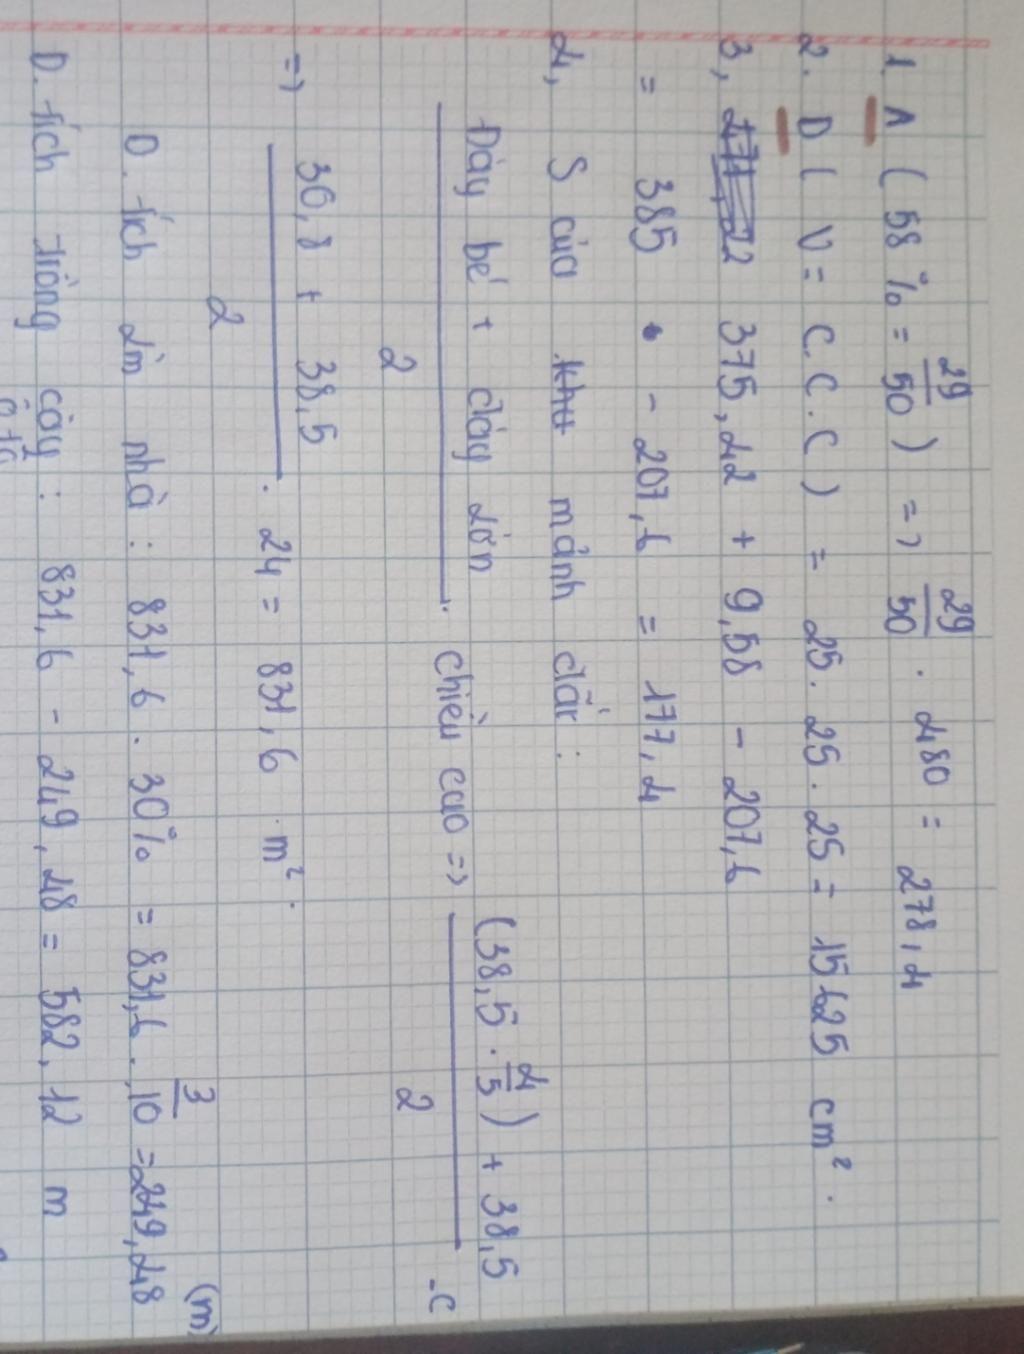 1. A ( 58 % = 29/50 ) => 29/50 . 480 = 278,4
2. D ( V = C.C.C ) = 25. 25. 25 = 15625 cm².
3, 375,42 + 9,58 - 207,6
= 385 - 207,6 = 177,4
4, S của mảnh đất :
Đáy bé + đáy lớn / 2 . chiều cao => (38,5 . 4/5) + 38,5 / 2 .C
=> 30,8 + 38,5 / 2 . 24 = 831,6 m².
D. tích làm nhà : 831,6 . 30% = 831,6 . 3/10 = 249,48 (m)
D. tích trồng cây : 831,6 - 249,48 = 582,12 m